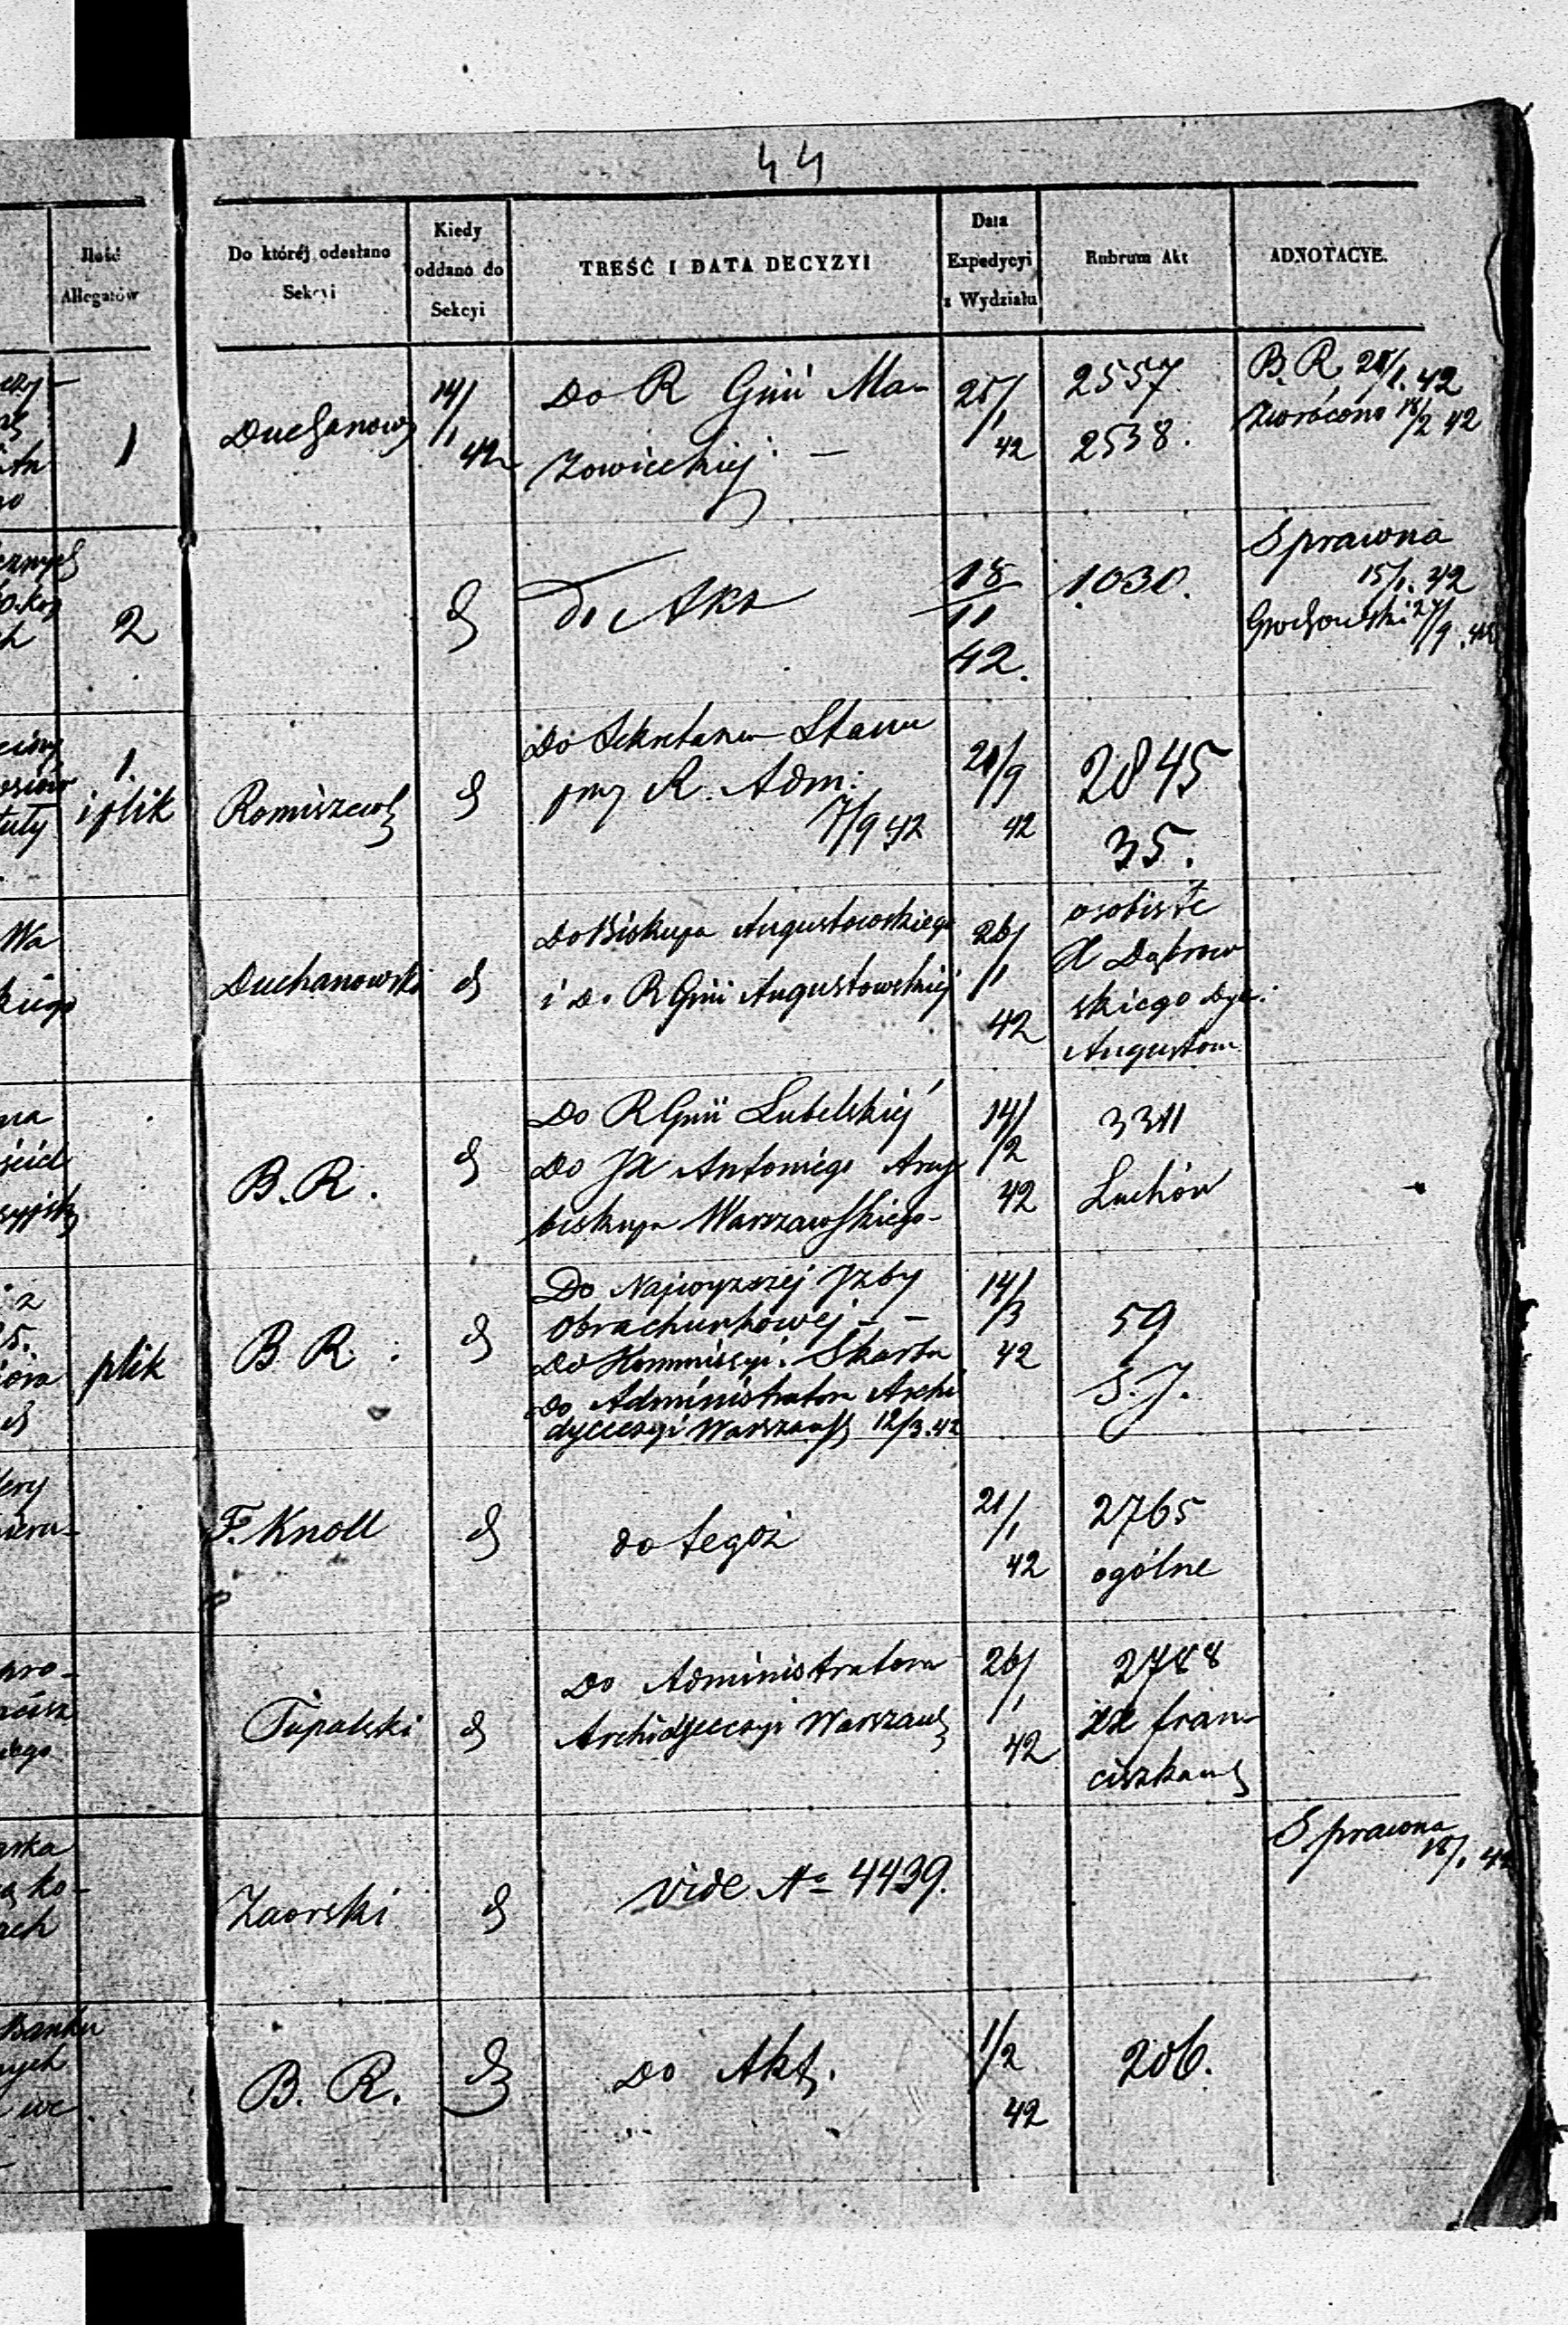 44
Ilość
Allegatów
Do któréj odesłano
Sekcyi
Kiedy
oddano do
Sekcyi
TREŚĆ I DATA DECYZYI
Data
Expedycyi
z Wydziału
Rubrum Akt
ADNOTACYE.
1
Duchanows
14/
1
42
Do R Gnii Ma-
zowieckiej —
25/
1
42
2557
2538.
B. R. 28/1. 42
Zwrócono 18/2 42
2
d
do Akt
18
11
42.
1030.
Sprawna
15/1. 42
Grochowski 27/9. 42
1.
i plik
Romiszews
d
Do Sekretarza Stanu
przy R. Adm:
7/9 42
21/9
42
2845
35.
Duchanowski
d
Do Biskupa Augustowskiego
i do R Gnii Augustowskiej
26/
1
42
osobiste
X Dąbrow
skiego Dye:
Augustow.
B. R.
d
Do R Gnii Lubelskiej
Do JX Antoniego Arcy
biskupa Warszawskiego-
14/
2
42
3311
Luchów
plik
B R.
d
Do Najwyzszej Izby
Obrachunkowej - -
Do Kommissyi Skarbu
do Administratora Archi
dyecezyi Warszaws 12/3. 42
14/
3
42
59
S. J.
F. Knoll
d
do tegoż
21/
1
42
2765
ogólne
Tupalski
d
Do Administratora
Archidyecezyi Warszaws
26/
1
42
2788
xx fran-
ciszkan
Zaorski
d
vide No 4439.
Sprawna
18/1 42
B. R.
d
Do Akt.
1/2
42
206.